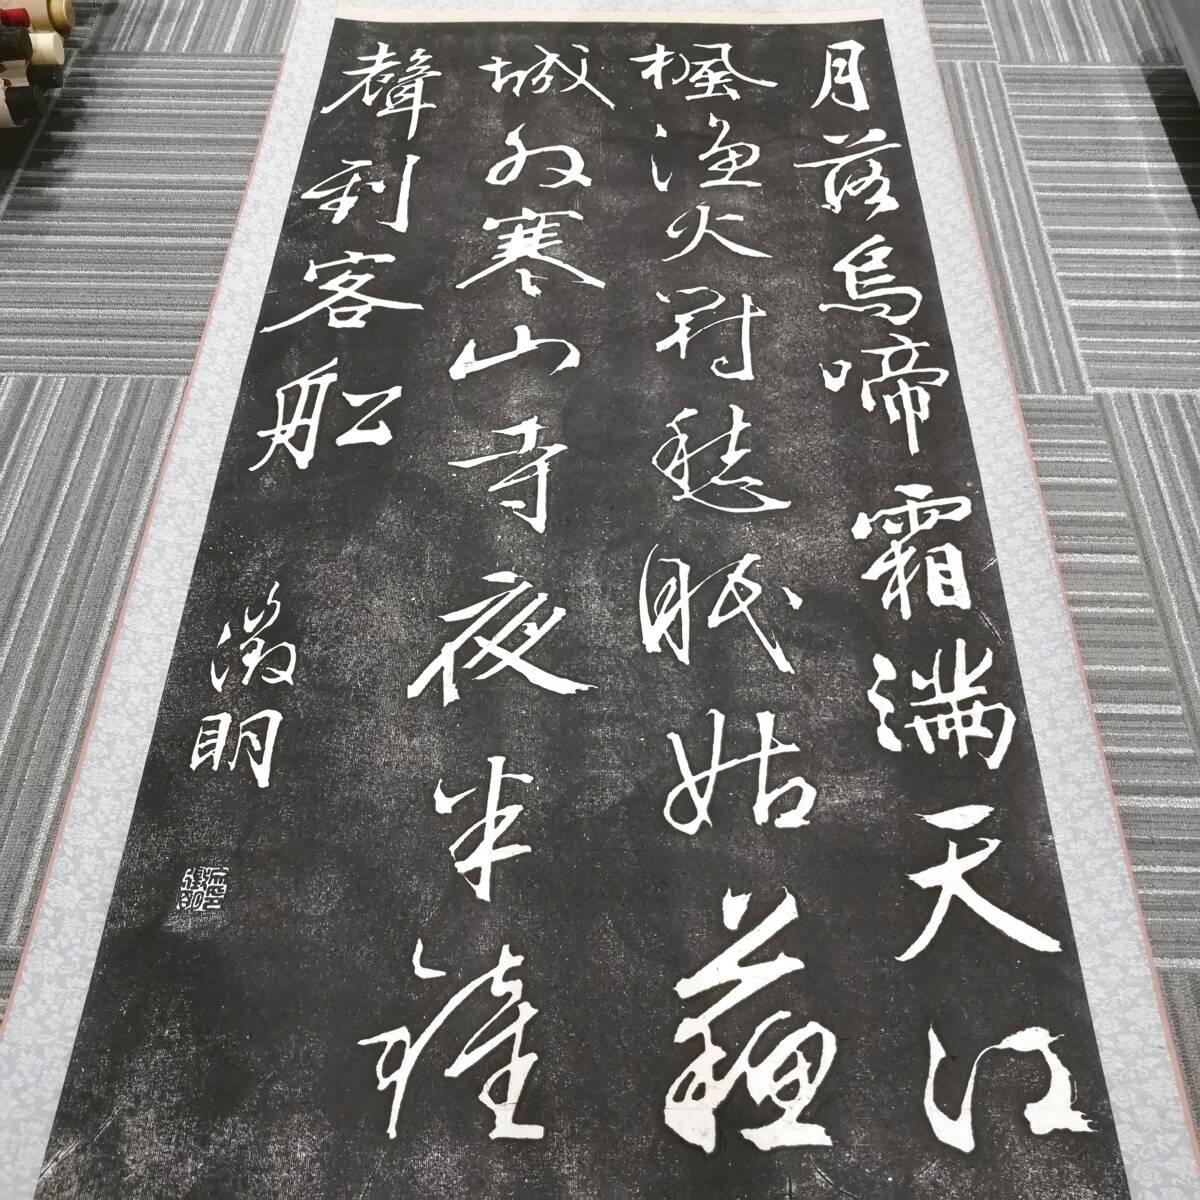 月落烏啼霜滿天江
楓漁火對愁眠姑蘇
城外寒山寺夜半鐘
聲到客船
徵明